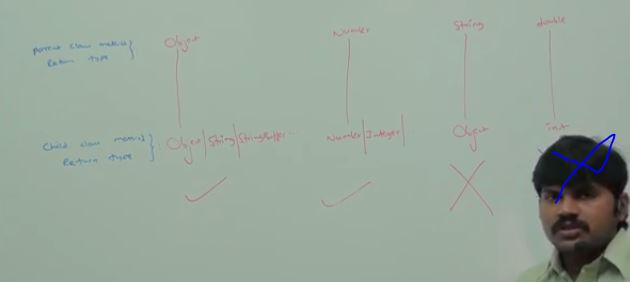 Parent class method Return type } Object Number String double
Child class method Return type } : Object|String|StringBuffer... Number|Integer| Object int